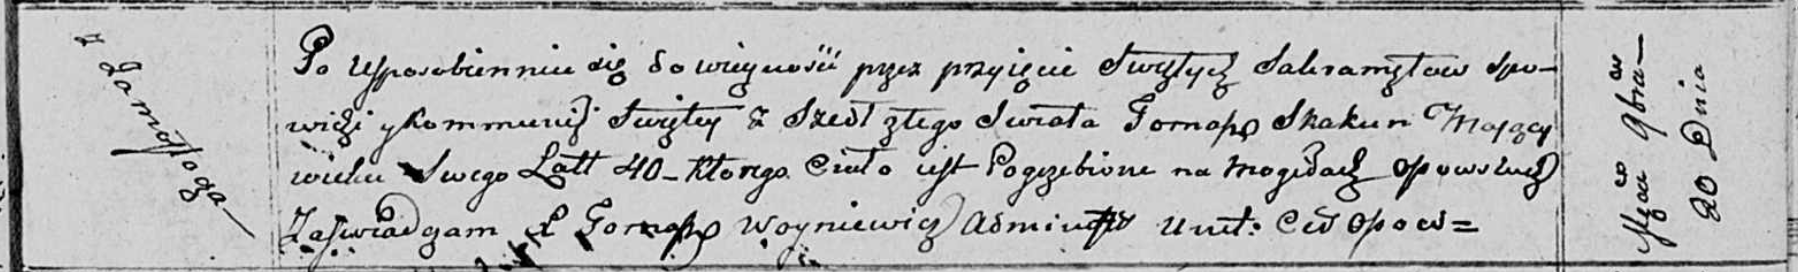 z Zamosza
Po Usposobienniu się do wieczności przez przyięcie Swiętych Sakramętow Spo-
wiedzi y Kommunij Swiętey Z Szedł ztego Swiata Tomasz Skakun Maiący
wieku Swego Latt 40 - Ktorego Ciało iest Pogrzebione na Mogiłach Opowskich
Zaswiadczam X Tomasz Woyniewicz Administr Unit: Cer Opow=
Msca 9bra
20 Dnia